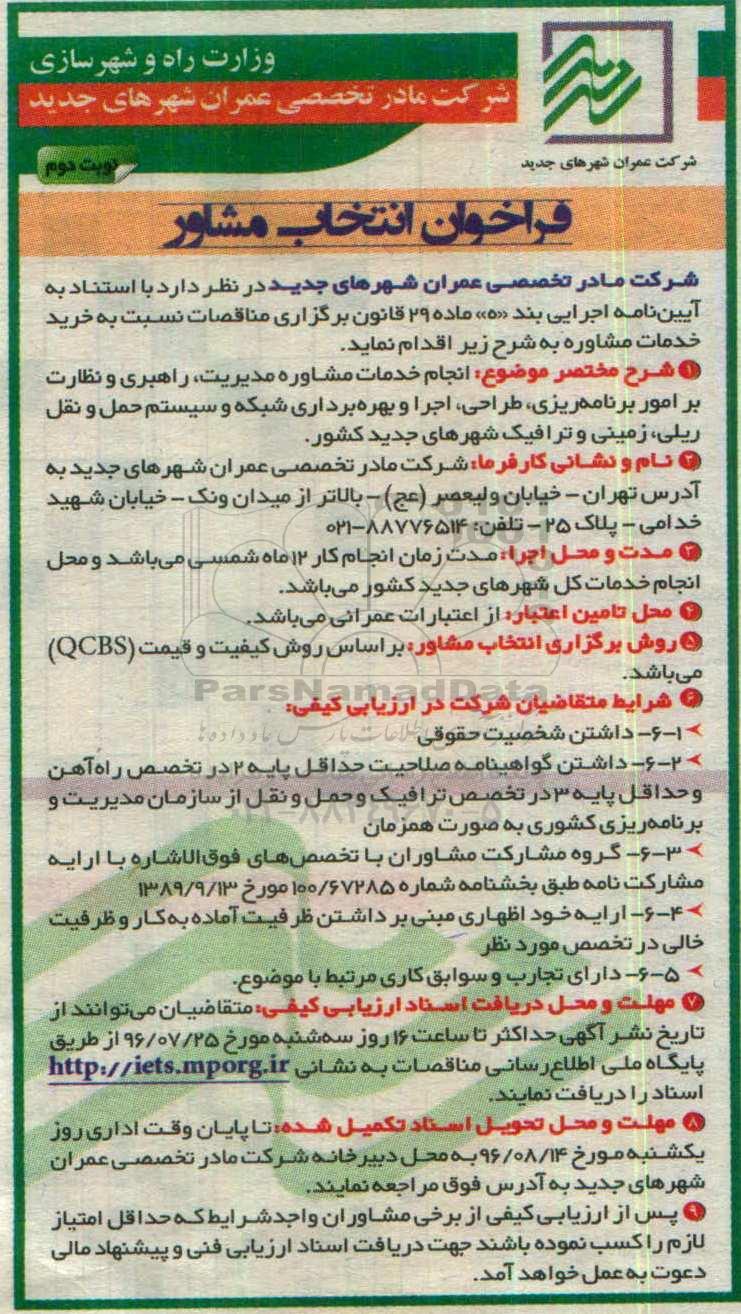 وزارت راه و شهرسازی
شرکت مادر تخصصی عمران شهرهای جدید
شرکت عمران شهرهای جدید
نوبت دوم
فراخوان انتخاب مشاور
شرکت مادر تخصصی عمران شهرهای جدید در نظر دارد با استناد به
آیین‌نامه اجرایی بند «ه» ماده ۲۹ قانون برگزاری مناقصات نسبت به خرید
خدمات مشاوره به شرح زیر اقدام نماید.
۱ شرح مختصر موضوع: انجام خدمات مشاوره مدیریت، راهبری و نظارت
بر امور برنامه‌ریزی، طراحی، اجرا و بهره‌برداری شبکه و سیستم حمل و نقل
ریلی، زمینی و ترافیک شهرهای جدید کشور.
۲ نام و نشانی کارفرما: شرکت مادر تخصصی عمران شهرهای جدید به
آدرس تهران – خیابان ولیعصر (عج) – بالاتر از میدان ونک – خیابان شهید
خدامی – پلاک ۲۵ – تلفن: ۸۸۷۷۶۵۱۴–۰۲۱
۳ مدت و محل اجرا: مدت زمان انجام کار ۱۲ ماه شمسی می‌باشد و محل
انجام خدمات کل شهرهای جدید کشور می‌باشد.
۴ محل تامین اعتبار: از اعتبارات عمرانی می‌باشد.
۵ روش برگزاری انتخاب مشاور: بر اساس روش کیفیت و قیمت (QCBS)
می‌باشد.
ParsNamadData
۶ شرایط متقاضیان شرکت در ارزیابی کیفی:
۶-۱- داشتن شخصیت حقوقی
۶-۲- داشتن گواهینامه صلاحیت حداقل پایه ۲ در تخصص راه‌آهن
و حداقل پایه ۳ در تخصص ترافیک و حمل و نقل از سازمان مدیریت و
برنامه‌ریزی کشوری به صورت همزمان
۶-۳- گروه مشارکت مشاوران با تخصص‌های فوق‌الاشاره با ارایه
مشارکت نامه طبق بخشنامه شماره ۱۰۰/۶۷۲۸۵ مورخ ۱۳۸۹/۹/۱۳
۶-۴- ارایه خود اظهاری مبنی بر داشتن ظرفیت آماده به‌کار و ظرفیت
خالی در تخصص مورد نظر
۶-۵- دارای تجارب و سوابق کاری مرتبط با موضوع.
۷ مهلت و محل دریافت اسناد ارزیابی کیفی: متقاضیان می‌توانند از
تاریخ نشر آگهی حداکثر تا ساعت ۱۶ روز سه‌شنبه مورخ ۹۶/۰۷/۲۵ از طریق
پایگاه ملی اطلاع‌رسانی مناقصات به نشانی http://iets.mporg.ir
اسناد را دریافت نمایند.
۸ مهلت و محل تحویل اسناد تکمیل شده: تا پایان وقت اداری روز
یکشنبه مورخ ۹۶/۰۸/۱۴ به محل دبیرخانه شرکت مادر تخصصی عمران
شهرهای جدید به آدرس فوق مراجعه نمایند.
۹ پس از ارزیابی کیفی از برخی مشاوران واجد شرایط که حداقل امتیاز
لازم را کسب نموده باشند جهت دریافت اسناد ارزیابی فنی و پیشنهاد مالی
دعوت به عمل خواهد آمد.